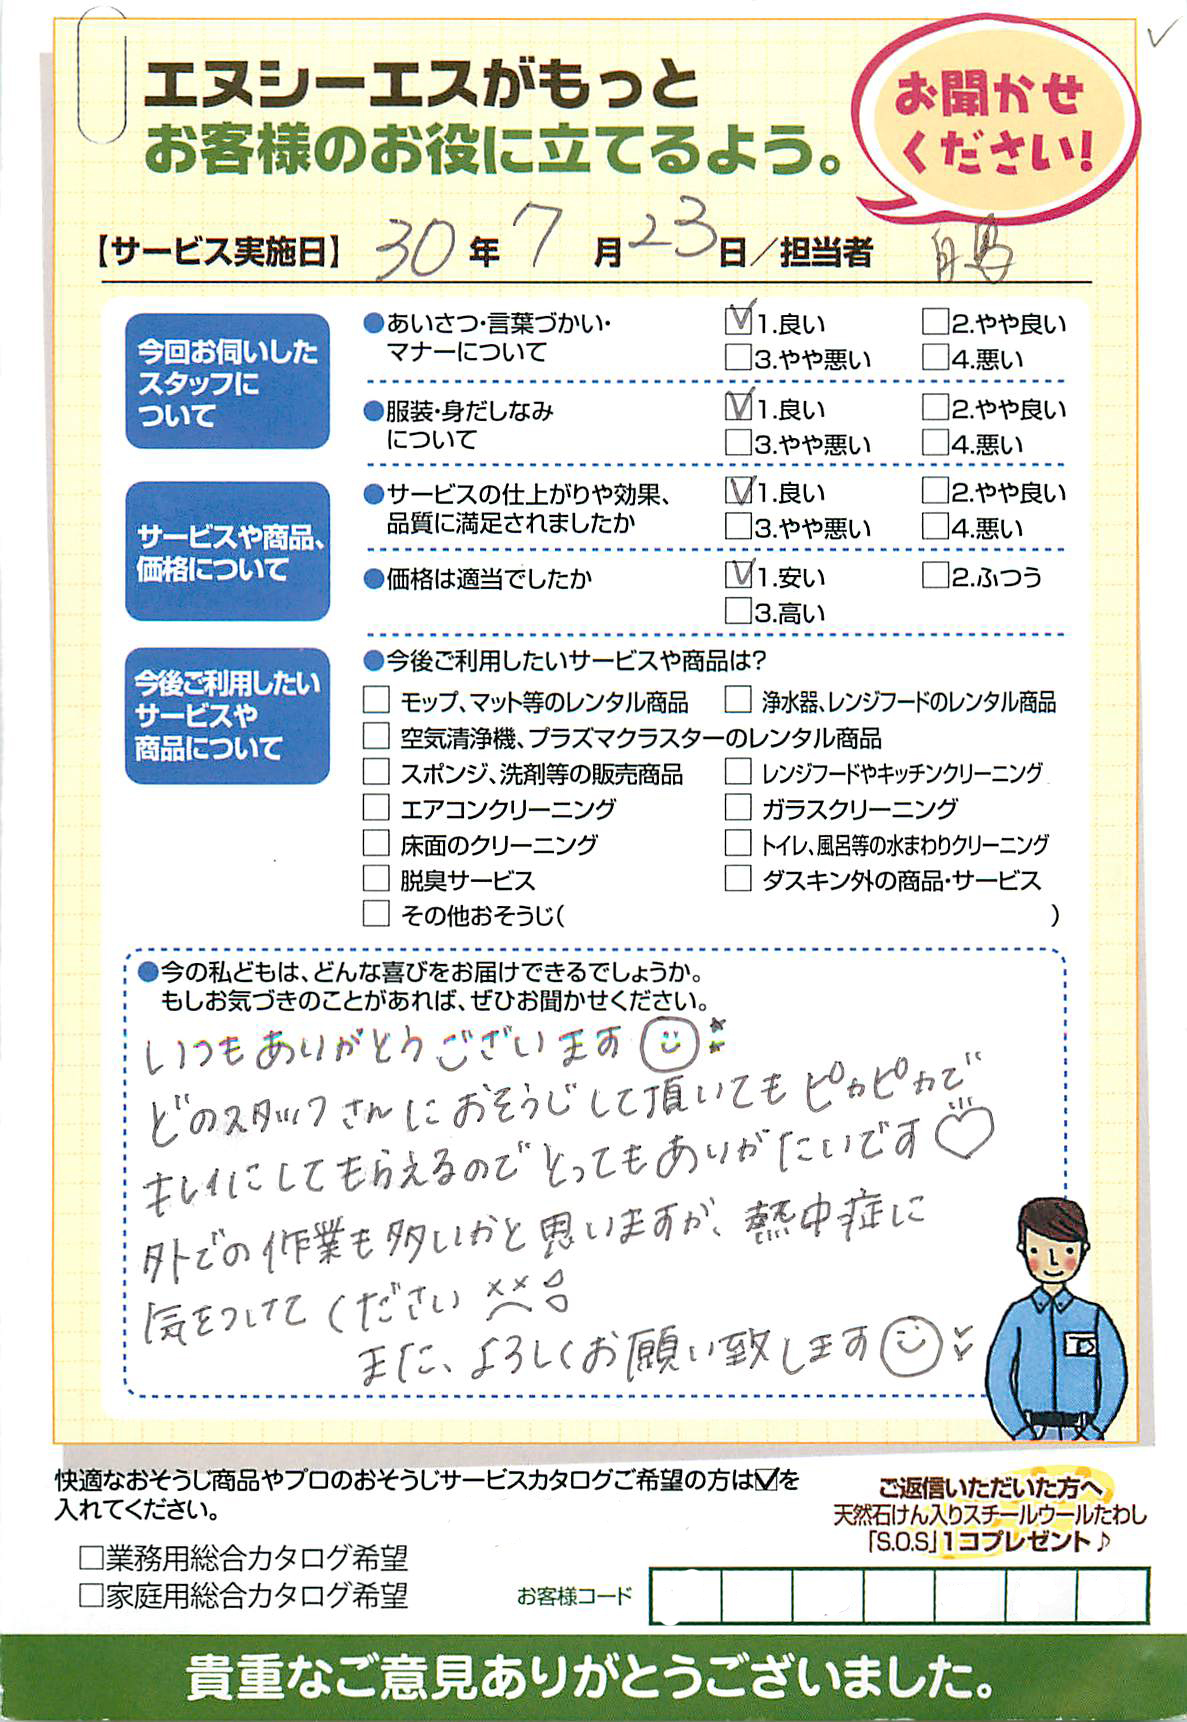 エヌシーエスがもっと
お客様のお役に立てるよう。
お聞かせ
ください!
【サービス実施日】 30年 7月 23日／担当者
今回お伺いした
スタッフに
ついて
●あいさつ・言葉づかい・
マナーについて
☑1.良い □2.やや良い
□3.やや悪い □4.悪い
●服装・身だしなみ
について
☑1.良い □2.やや良い
□3.やや悪い □4.悪い
サービスや商品、
価格について
●サービスの仕上がりや効果、
品質に満足されましたか
☑1.良い □2.やや良い
□3.やや悪い □4.悪い
●価格は適当でしたか
☑1.安い □2.ふつう
□3.高い
今後ご利用したい
サービスや
商品について
●今後ご利用したいサービスや商品は?
□ モップ、マット等のレンタル商品 □ 浄水器、レンジフードのレンタル商品
□ 空気清浄機、プラズマクラスターのレンタル商品
□ スポンジ、洗剤等の販売商品 □ レンジフードやキッチンクリーニング
□ エアコンクリーニング □ ガラスクリーニング
□ 床面のクリーニング □ トイレ、風呂等の水まわりクリーニング
□ 脱臭サービス □ ダスキン外の商品・サービス
□ その他おそうじ( )
●今の私どもは、どんな喜びをお届けできるでしょうか。
もしお気づきのことがあれば、ぜひお聞かせください。
いつもありがとうございます
どのスタッフさんにおそうじして頂いてもピカピカで
キレイにしてもらえるのでとってもありがたいです♡
外での作業も多いかと思いますが、熱中症に
気をつけてください
また、よろしくお願い致します
快適なおそうじ商品やプロのおそうじサービスカタログご希望の方は☑を
入れてください。
□業務用総合カタログ希望
□家庭用総合カタログ希望
ご返信いただいた方へ
天然石けん入りスチールウールたわし
「S.O.S」1コプレゼント♪
お客様コード
貴重なご意見ありがとうございました。